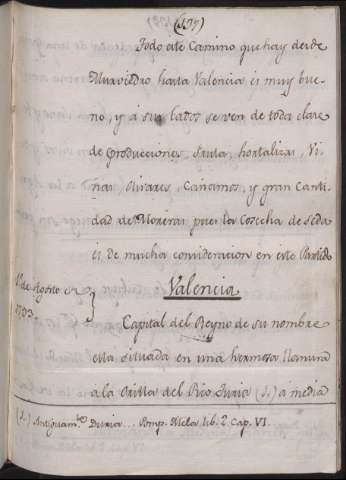 (137)
Todo este Camino que hay desde
Murviedro hasta Valencia es muy bue-
no, y á sus lados se ven de toda clase
de producciones, fruta, hortalizas, Vi-
ñas, Olivares, Cañamos, y gran Canti-
dad de Moreras pues la Cosecha de Seda
es de mucha consideracion en este Partido
Valencia
Agosto
1793
Capital del Reyno de su nombre
està situada en una hermosa llanura
a la Orilla del Rio Turia (1.) á media
(1.) Antiguam.te Duria... Pomp. Mela lib. 2. Cap. VI.